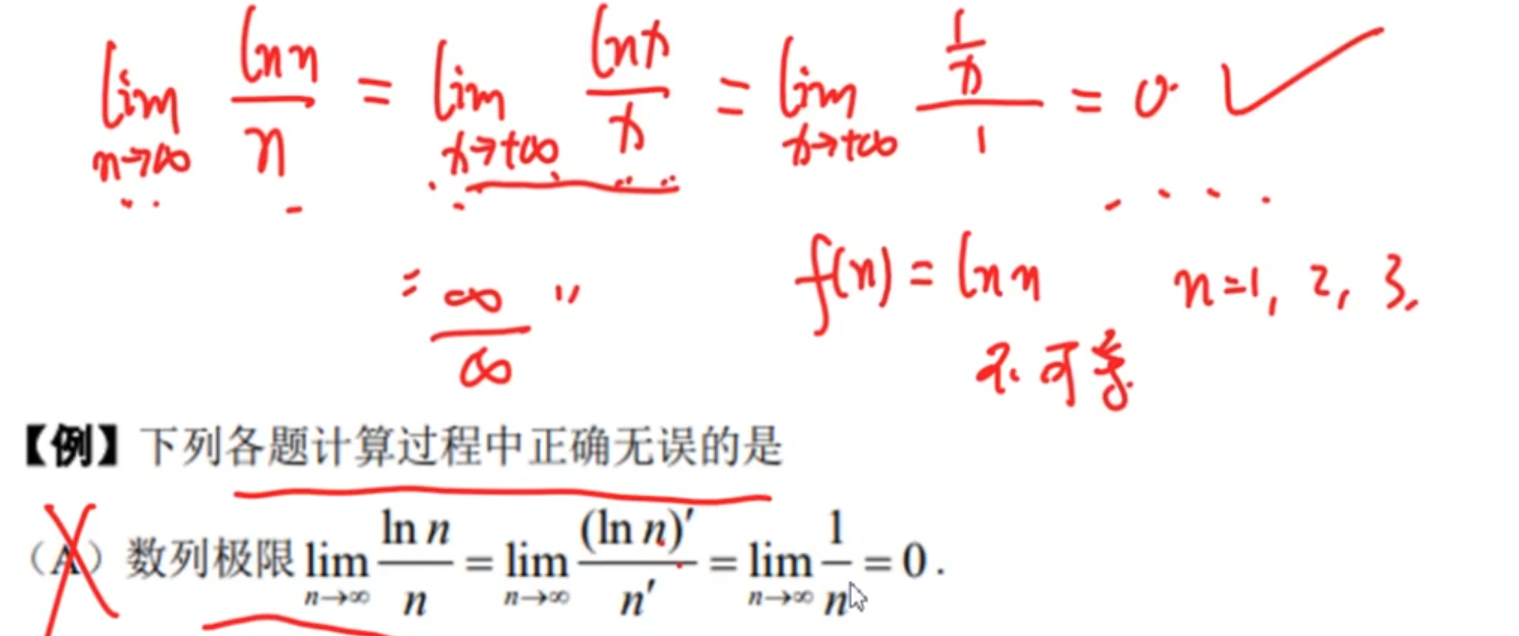 lim n→∞ ln n / n = lim x→+∞ ln x / x = lim x→+∞ (1/x) / 1 = 0. ✓
= ∞/∞ "
f(n) = ln n n=1, 2, 3,
不可导.
【例】下列各题计算过程中正确无误的是
（A）数列极限 lim n→∞ ln n / n = lim n→∞ (ln n)′ / n′ = lim n→∞ 1/n = 0.